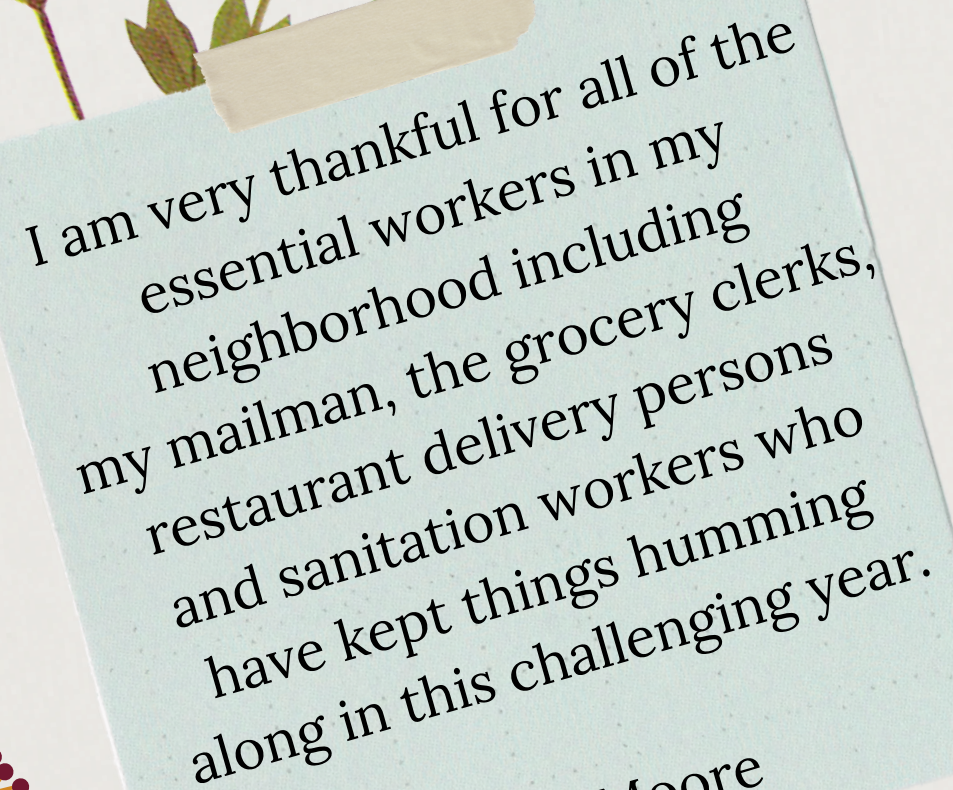 I am very thankful for all of the
essential workers in my
neighborhood including
my mailman, the grocery clerks,
restaurant delivery persons
and sanitation workers who
have kept things humming
along in this challenging year.
Moore